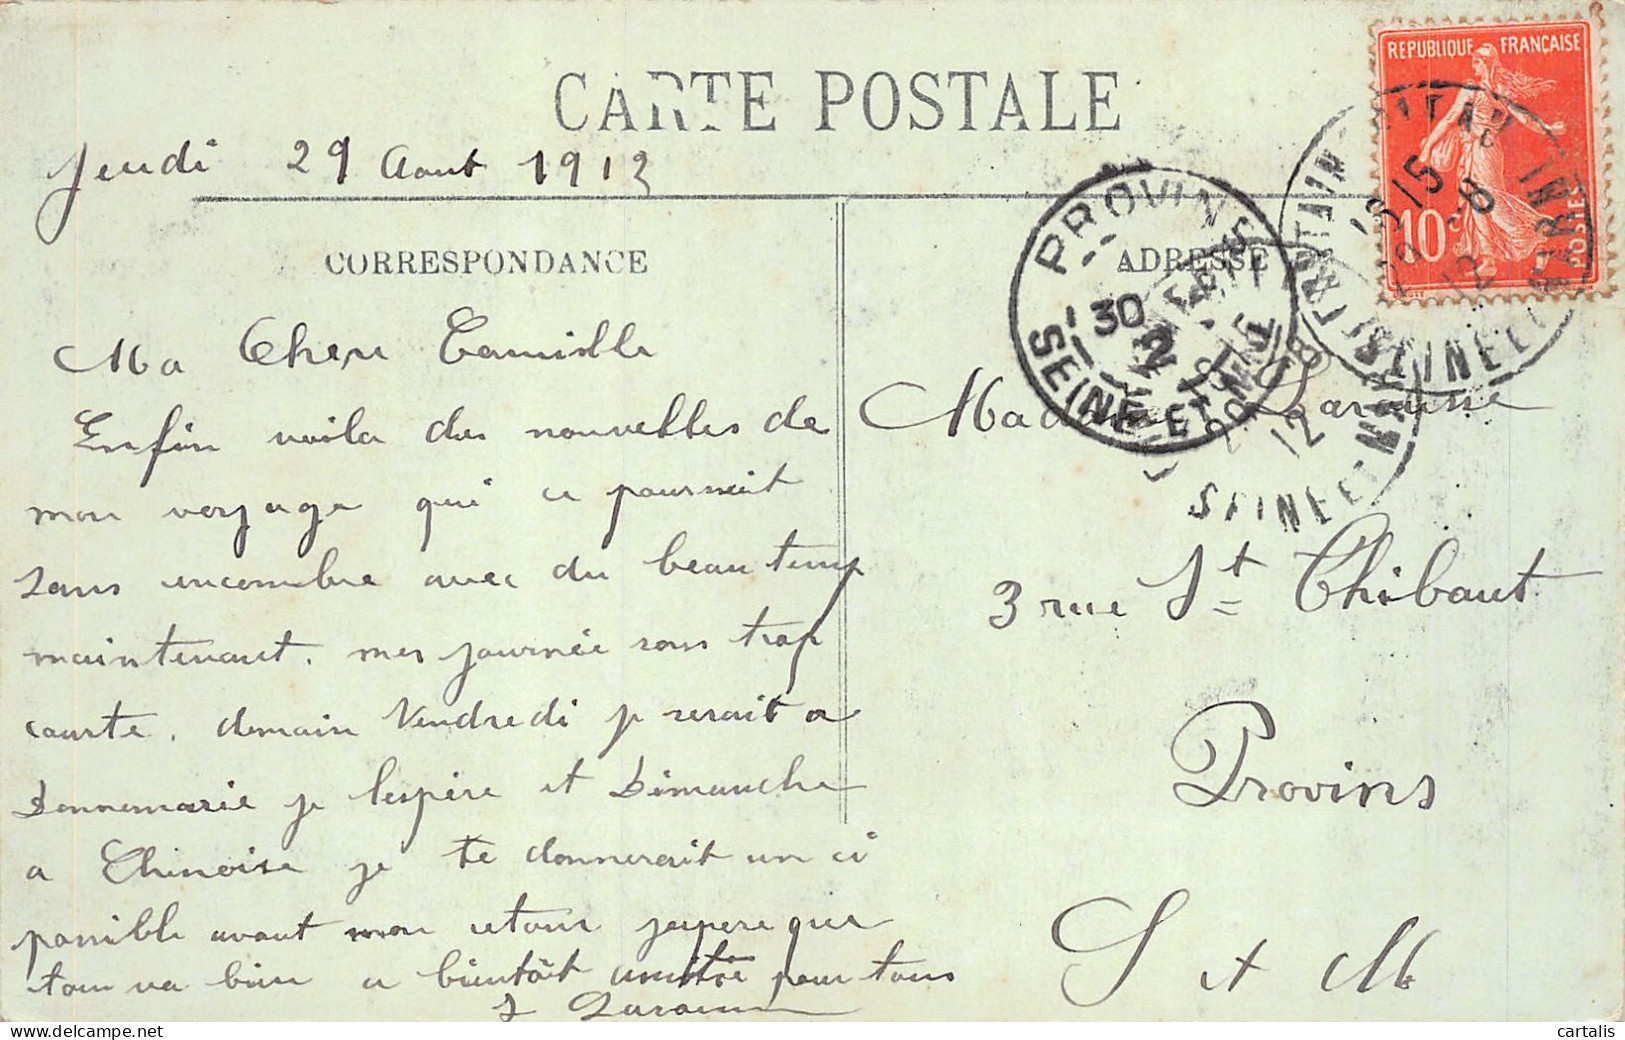 CARTE POSTALE
Jeudi 29 Aout 1912
CORRESPONDANCE
Ma Chere Camille
Enfin voila des nouvelles de
mon voyage qui ce poursuit
sans encombre avec du beau temp
maintenant. mes journée sons trop
courte. demain Vendredi je serait a
Donnemarie je l'espère et Dimanche
a Chenoise je te donnerait un ci
possible avant mon retour j'espere que
tout va bien a bientôt amitié pour tous
ADRESSE
Madame
3 rue St Thibaut
Provins
S et M
REPUBLIQUE FRANÇAISE
10c
POSTES
PROVINS
30
SEINE ET M
16 15
29 - 8
12
SEINE ET MARNE
12
SEINE ET MARNE
cartalis